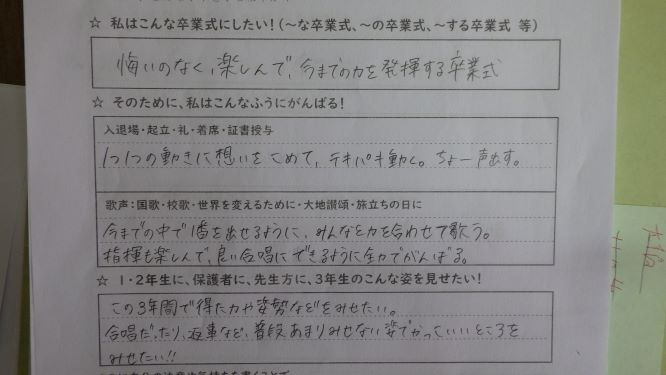 ☆ 私はこんな卒業式にしたい!(〜な卒業式、〜の卒業式、〜する卒業式 等)
悔いのなく、楽しんで、今までの力を発揮する卒業式
☆ そのために、私はこんなふうにがんばる!
入退場・起立・礼・着席・証書授与
1つ1つの動きに想いをこめて、テキパキ動く。ちょー声出す。
歌声:国歌・校歌・世界を変えるために・大地讃頌・旅立ちの日に
今までの中で1番を出せるように、みんなと力を合わせて歌う。
指揮も楽しんで、良い合唱にできるように全力でがんばる。
☆ 1・2年生に、保護者に、先生方に、3年生のこんな姿を見せたい!
この3年間で得た力や姿勢などをみせたい。
合唱だったり、返事など、普段あまりみせない姿でかっこいいところを
みせたい!!